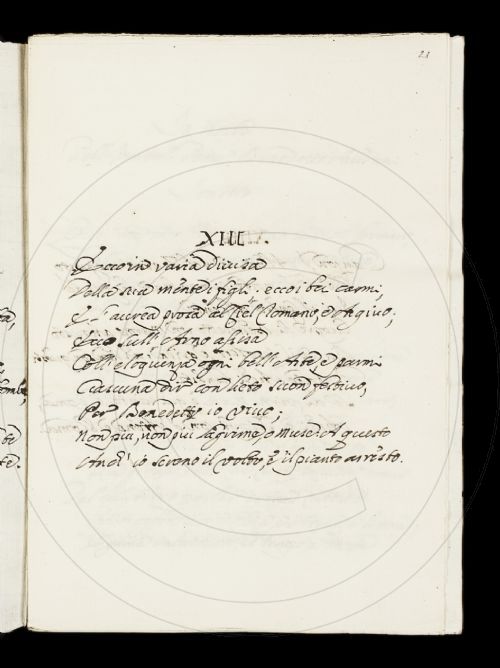 21
XIII.
Eccoin varia divisa
Della sua mente i figli: ecco i bei carmi,
E l'aurea prosa al Ciel Romano, e Argivo;
Ecco sull'Arno assisa
Coll'eloquenza ogni bell'Arte, e parmi
Ciascuna dir con lieto suon festivo,
Per Benedetto io vivo;
Non più, non più lagrime, o Muse: A questo
Anch'io sereno il volto, e il pianto arresto.